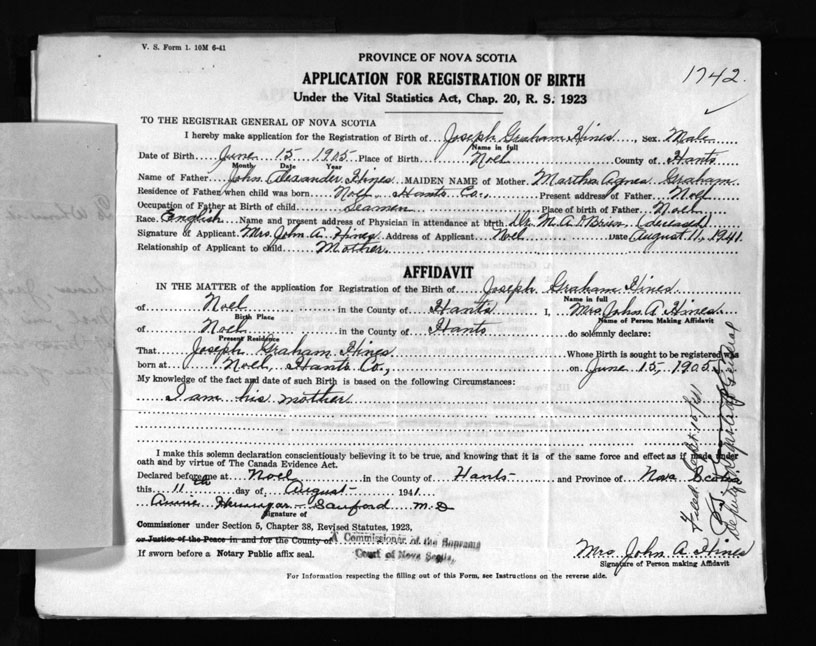 V. S. Form 1. 10M 6-41
PROVINCE OF NOVA SCOTIA
1742.
APPLICATION FOR REGISTRATION OF BIRTH
Under the Vital Statistics Act, Chap. 20, R. S. 1923
TO THE REGISTRAR GENERAL OF NOVA SCOTIA
I hereby make application for the Registration of Birth of Joseph Graham Hines, Sex Male
Name in full
Date of Birth June 15 1905 Place of Birth Noel County of Hants
Month Date Year
Name of Father John Alexander Hines MAIDEN NAME of Mother Martha Agnes Graham
Residence of Father when child was born Noel, Hants Co., Present address of Father Noel
Occupation of Father at Birth of child Seamen Place of birth of Father Noel
Race English Name and present address of Physician in attendance at birth Dr. M. A. O'Brien (deceased)
Signature of Applicant Mrs. John A. Hines Address of Applicant Noel Date August 11, 1941.
Relationship of Applicant to child Mother.
AFFIDAVIT
IN THE MATTER of the application for Registration of the Birth of Joseph Graham Hines
Name in full
of Noel in the County of Hants I, Mrs. John A Hines
Birth Place Name of Person Making Affidavit
of Noel in the County of Hants do solemnly declare:
Present Residence
That Joseph Graham Hines Whose Birth is sought to be registered was
born at Noel, Hants Co., on June 15, 1905.
My knowledge of the fact and date of such Birth is based on the following Circumstances:
I am his mother
I make this solemn declaration conscientiously believing it to be true, and knowing that it is of the same force and effect as if made under
oath and by virtue of The Canada Evidence Act.
Declared before me at Noel in the County of Hants and Province of Nova Scotia
this 11th day of August 1941
Annie Sanford M.D
Signature of
Commissioner under Section 5, Chapter 38, Revised Statutes, 1923,
or Justice of the Peace in and for the County of A Commissioner of the Supreme
Court of Nova Scotia,
If sworn before a Notary Public affix seal.
Mrs. John A. Hines
Signature of Person making Affidavit
For Information respecting the filling out of this Form, see Instructions on the reverse side.
Filed Sept. 10/41
Deputy Registrar General